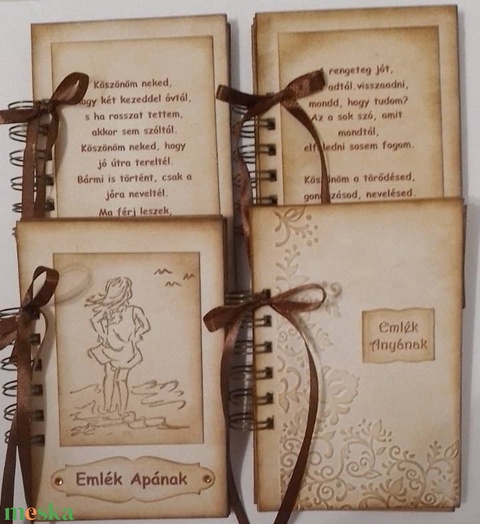 Köszönöm neked,
hogy két kezeddel óvtál,
s ha rosszat tettem,
akkor sem szóltál.
Köszönöm neked, hogy
jó útra tereltél.
Bármi is történt, csak a
jóra neveltél.
Ma férj leszek,
rengeteg jót,
visszaadni,
mondd, hogy tudom?
Az a sok szó, amit
mondtál,
sosem fogom.
Köszönöm a törődésed,
nevelésed.
Emlék Apának
Emlék
Anyának
meska